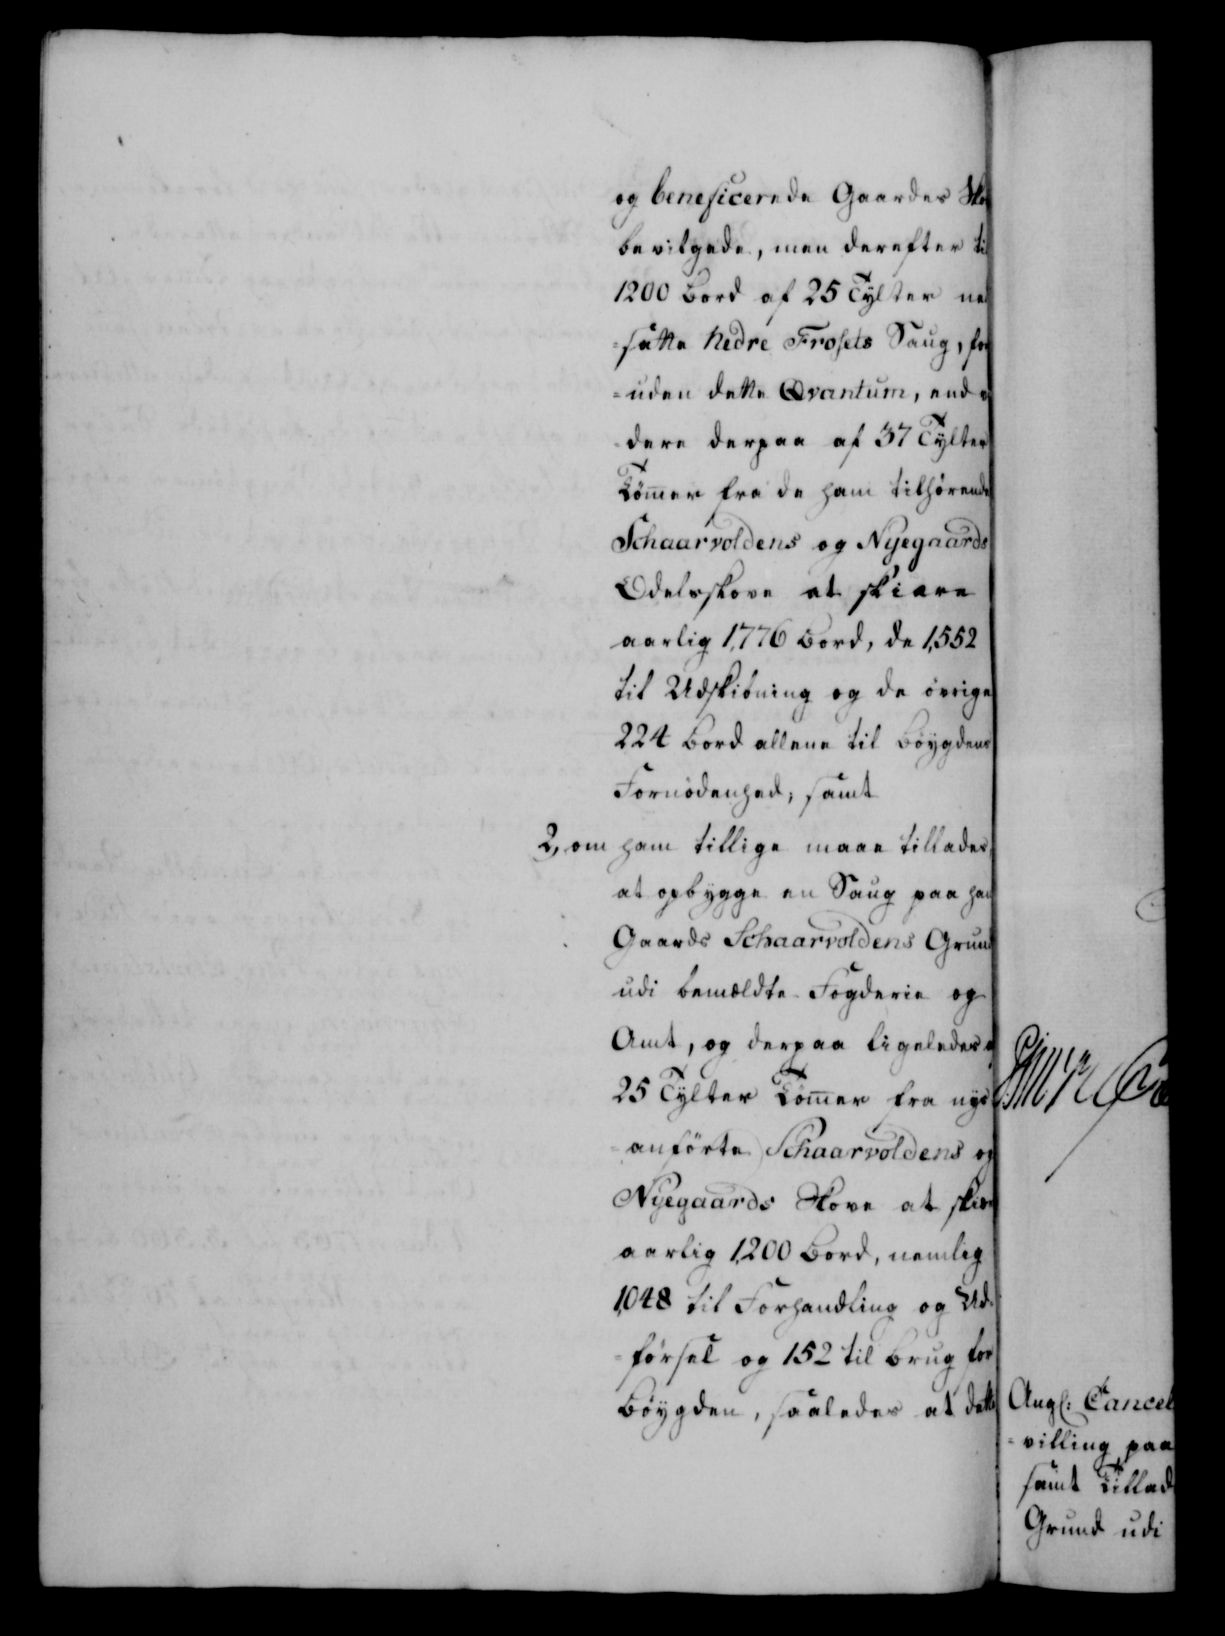 og beneficerede Gaarders Sko
bevilgede, men derefter ti
1200 Bord af 25 Tylter ne
-satte Nedre Frosets Saug, for
-uden dette Qvantum, end vi
-dere derpaa af 37 Tylter
Tømer fra de ham tilhørende
Schaarvoldens og Nyegaards
Odelsskove at skiære
aarlig 1,776 Bord, de 1,552
til Udskibning og de øvrige
224 Bord allene til Bøygdens
Fornødenhed; samt
2, om ham tillige maae tillades,
at opbygge en Saug paa han
Gaards Schaarvoldens Grund
udi bemældte Fogderie og
Amt, og derpaa ligeledes
25 Tylter Tømer fra nys
-anførte Schaarvoldens og
Nyegaards Skove at skiær
aarlig 1,200 Bord, nemlig
1,048 til Forhandling og Ud-
-førsel og 152 til Brug for
Bøygden, saaledes at dette
Angl: Cancel
-villing paa
samt Tillad
Grund udi